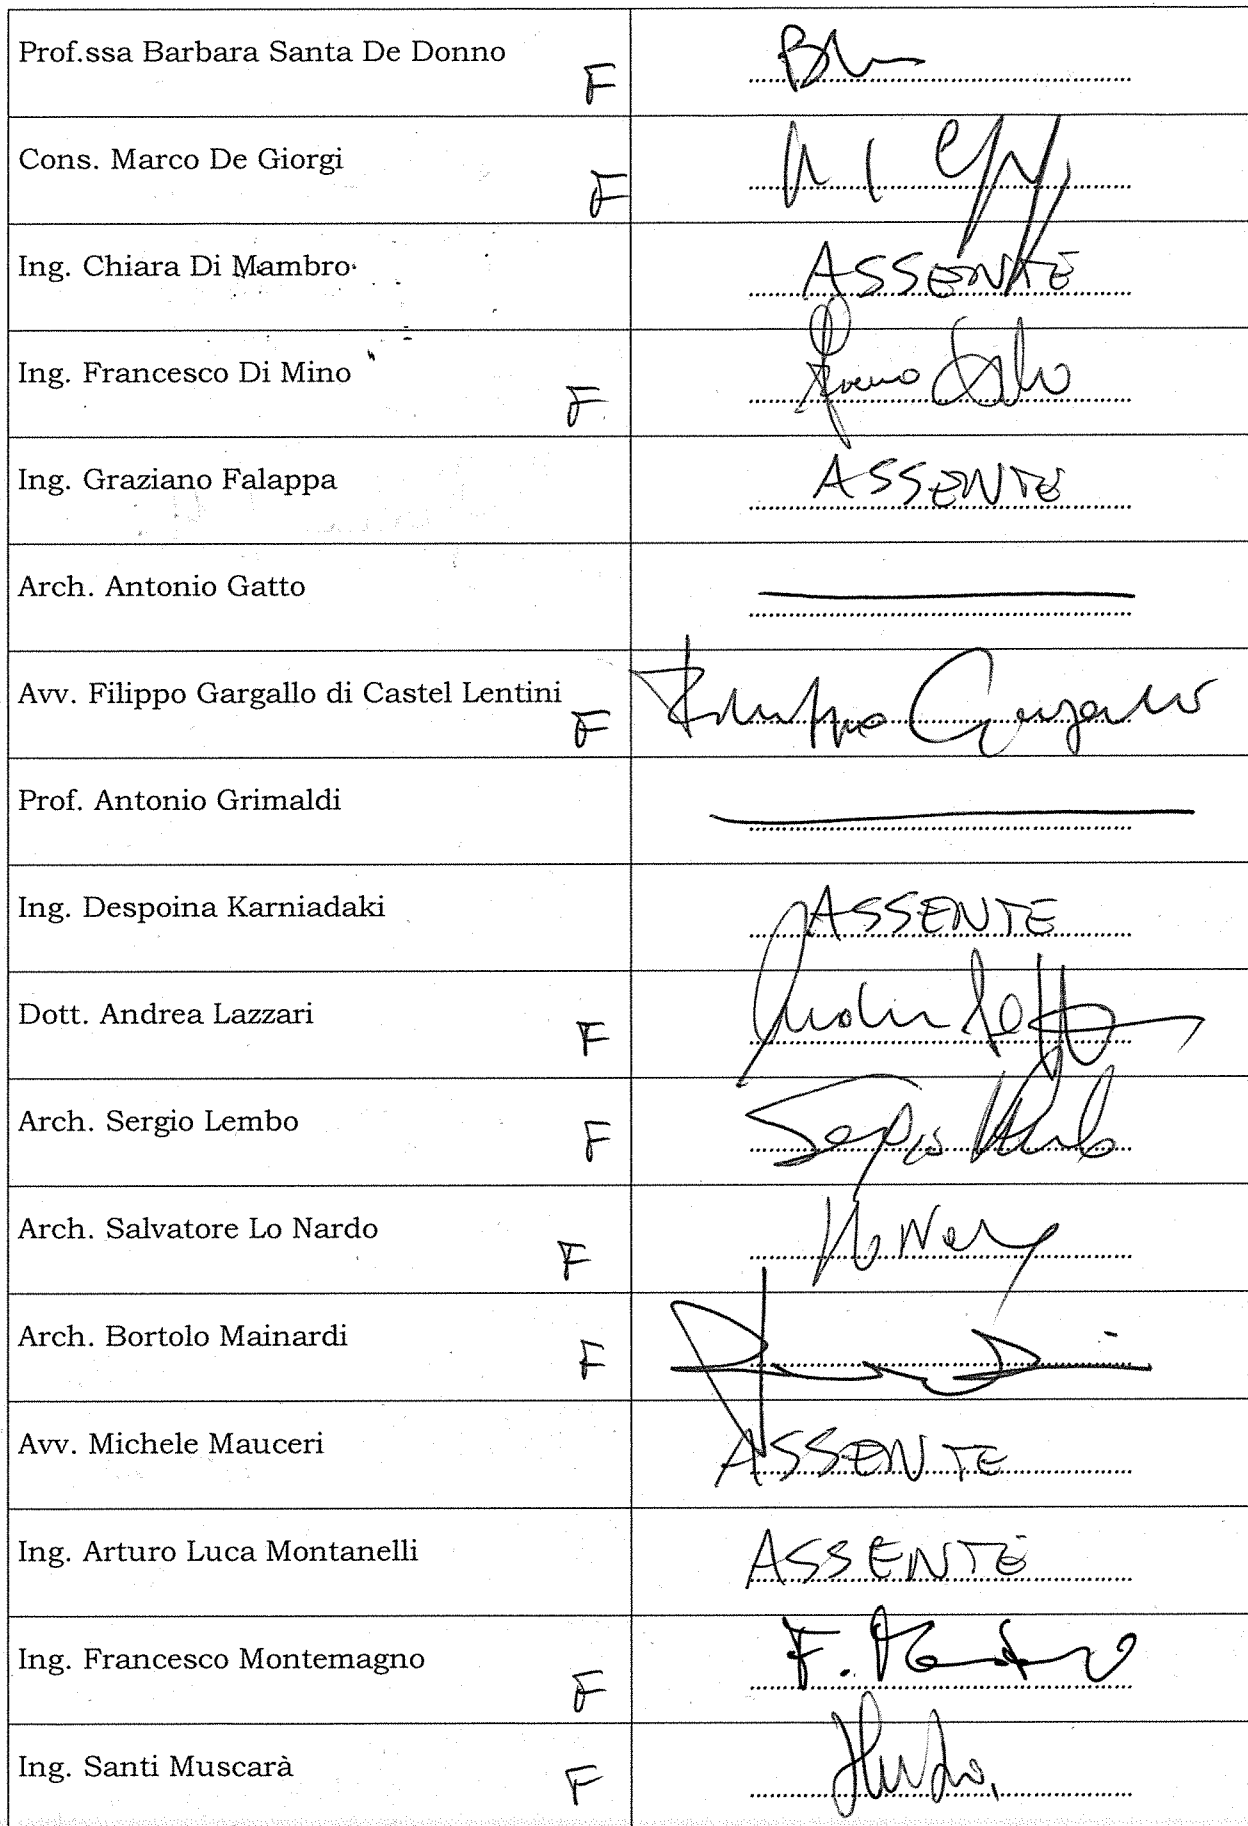 Prof.ssa Barbara Santa De Donno F
Cons. Marco De Giorgi F
Ing. Chiara Di Mambro ASSENTE
Ing. Francesco Di Mino F
Ing. Graziano Falappa ASSENTE
Arch. Antonio Gatto
Avv. Filippo Gargallo di Castel Lentini F Filippo Gargallo
Prof. Antonio Grimaldi
Ing. Despoina Karniadaki ASSENTE
Dott. Andrea Lazzari F
Arch. Sergio Lembo F Sergio Lembo
Arch. Salvatore Lo Nardo F
Arch. Bortolo Mainardi F
Avv. Michele Mauceri ASSENTE
Ing. Arturo Luca Montanelli ASSENTE
Ing. Francesco Montemagno F F.
Ing. Santi Muscarà F